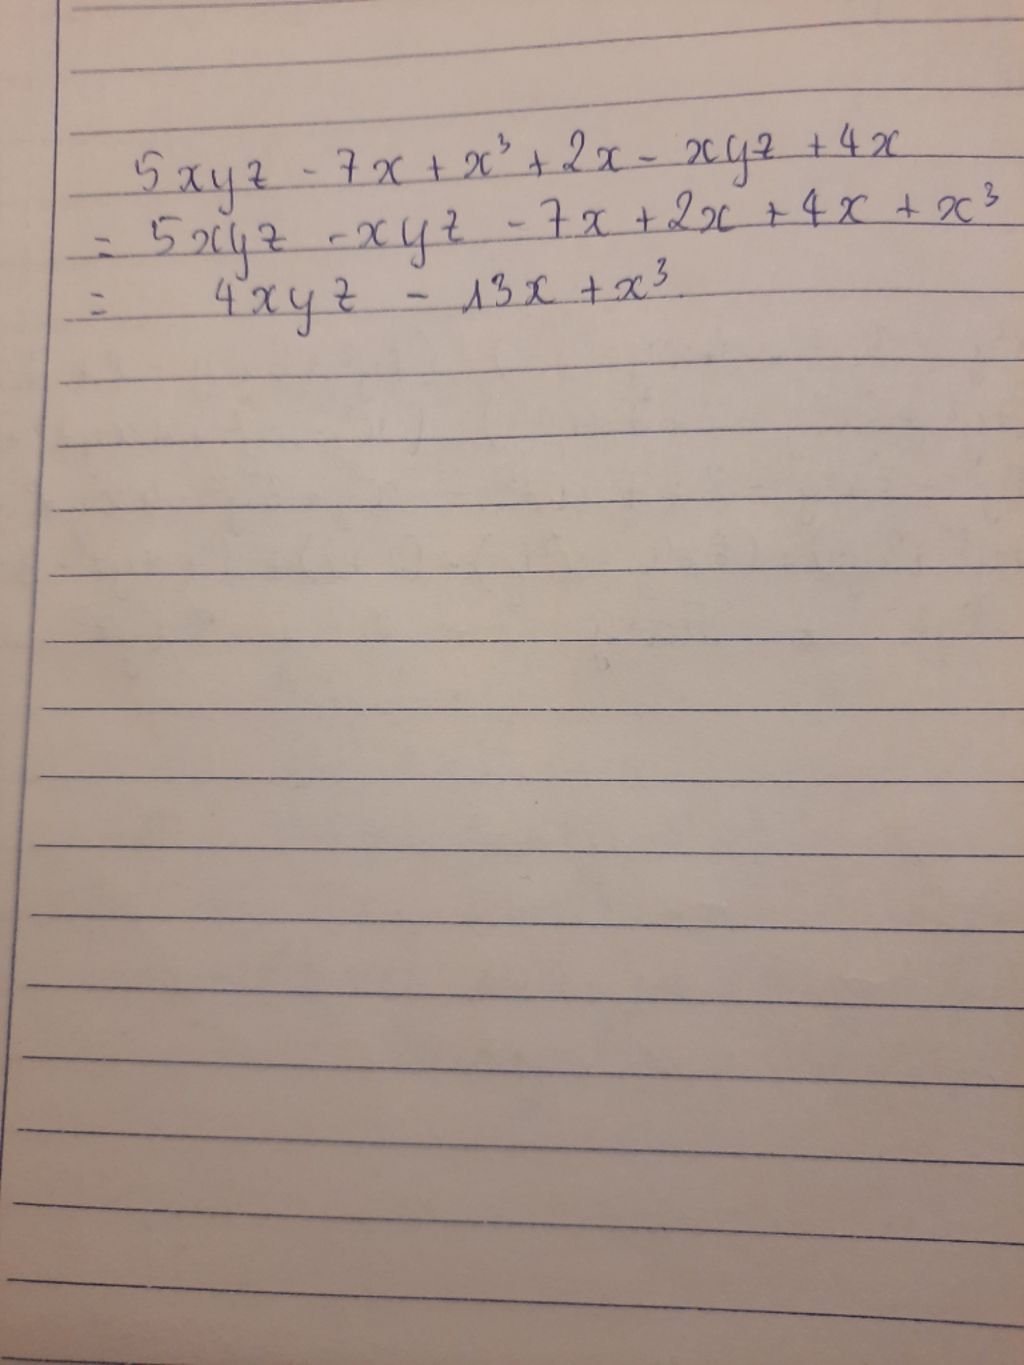 5xyz - 7x + x³ + 2x - xyz + 4x
= 5xyz - xyz - 7x + 2x + 4x + x³
= 4xyz - 13x + x³